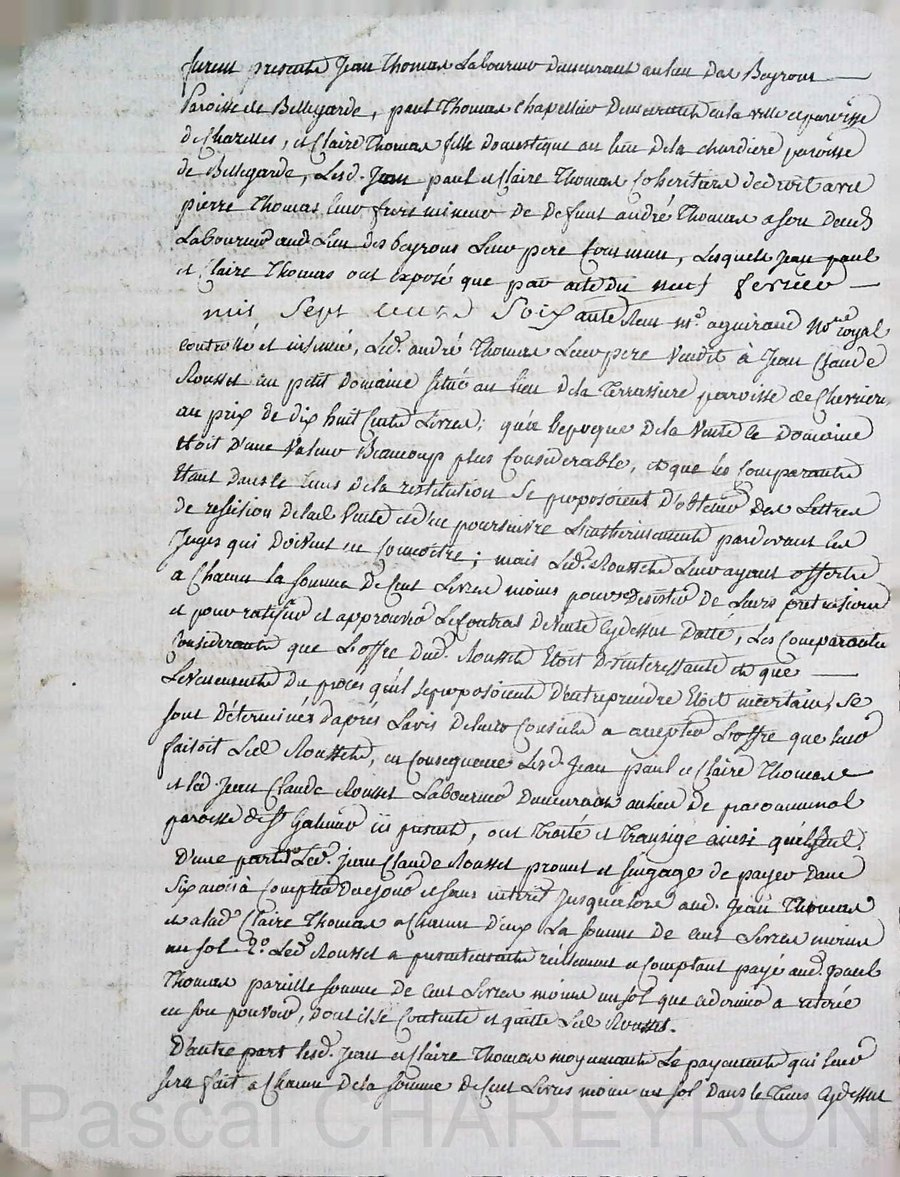 furent presents Jean Thomas Laboureur demeurant au lieu des Beyrons
Paroisse de Bellegarde, paul Thomas chapellier demeurant en la ville et paroisse
de Chazelles, et Claire Thomas fille domestique au lieu de la chardiere paroisse
de Bellegarde, Lesd. Jean paul et Claire Thomas Coheritiers de droit avec
pierre Thomas leur frere mineur de defunt andré Thomas a son deceds
Laboureur aud. Lieu des beyrons Leur pere Commun, Lesquels Jean paul
et Claire Thomas ont exposé que par acte du neuf fevrier
mil sept cents soixante reçu me. aguiraud Nore royal
controllé et insinué, Led. andré Thomas Leur pere Vendit à Jean Claude
Rousset un petit domaine situé au lieu de la Terrassiere paroisse de Chevrieres
au prix de dix huit Cents Livres; qu'a l'epoque de la Vente le Domaine
étoit d'une Valeur Beaucoup plus Considerable, et que les Comparants
étant dans le tems de la restitution se proposoient d'obtenir des Lettres
de rescision de lad. Vente et d'en poursuivre L'entherinement pardevant les
Juges qui doivent en Connoitre; mais Led. Rousset Leur ayant offert
a Chacun la somme de Cent Livres moins pour se desister de Leurs pretentions
et pour ratifier et approuver Le Contrat de Vente cy dessus datté, Les Comparants
Considerants que L'offre dud. Rousset Etoit interessante et que
L'evenement du procès qu'ils se proposoient d'entreprendre Etoit incertain, se
sont déterminés d'après L'avis de leur Conseils a accepter L'offre que leur
faisoit Led. Rousset, en Consequence Lesd. Jean paul et Claire Thomas
et led. Jean Claude Rousset Laboureur Demeurant au lieu de
paroisse de St Galmier ici present, ont Traité et Transigé ainsi qu'il suit.
D'une part Led. Jean Claude Rousset promet et s'engage de payer dans
six mois à Compter de ce jour et sans interet jusqu'alors aud. Jean Thomas
et a lad. Claire Thomas a Chacun d'eux La somme de cent Livres moins
un sol 2o. Led. Rousset a presentement reellement et Comptant payé aud. paul
Thomas pareille somme de Cent Livres moins un sol que ce dernier a retirée
en son pouvoir, dont il se Contente et quitte Led. Rousset.
D'autre part lesd. Jean et Claire Thomas moyennant Le payement qui leur
sera fait a Chacun de la somme de Cent Livres moins un sol dans le tems cy dessus
Pascal CHAREYRON